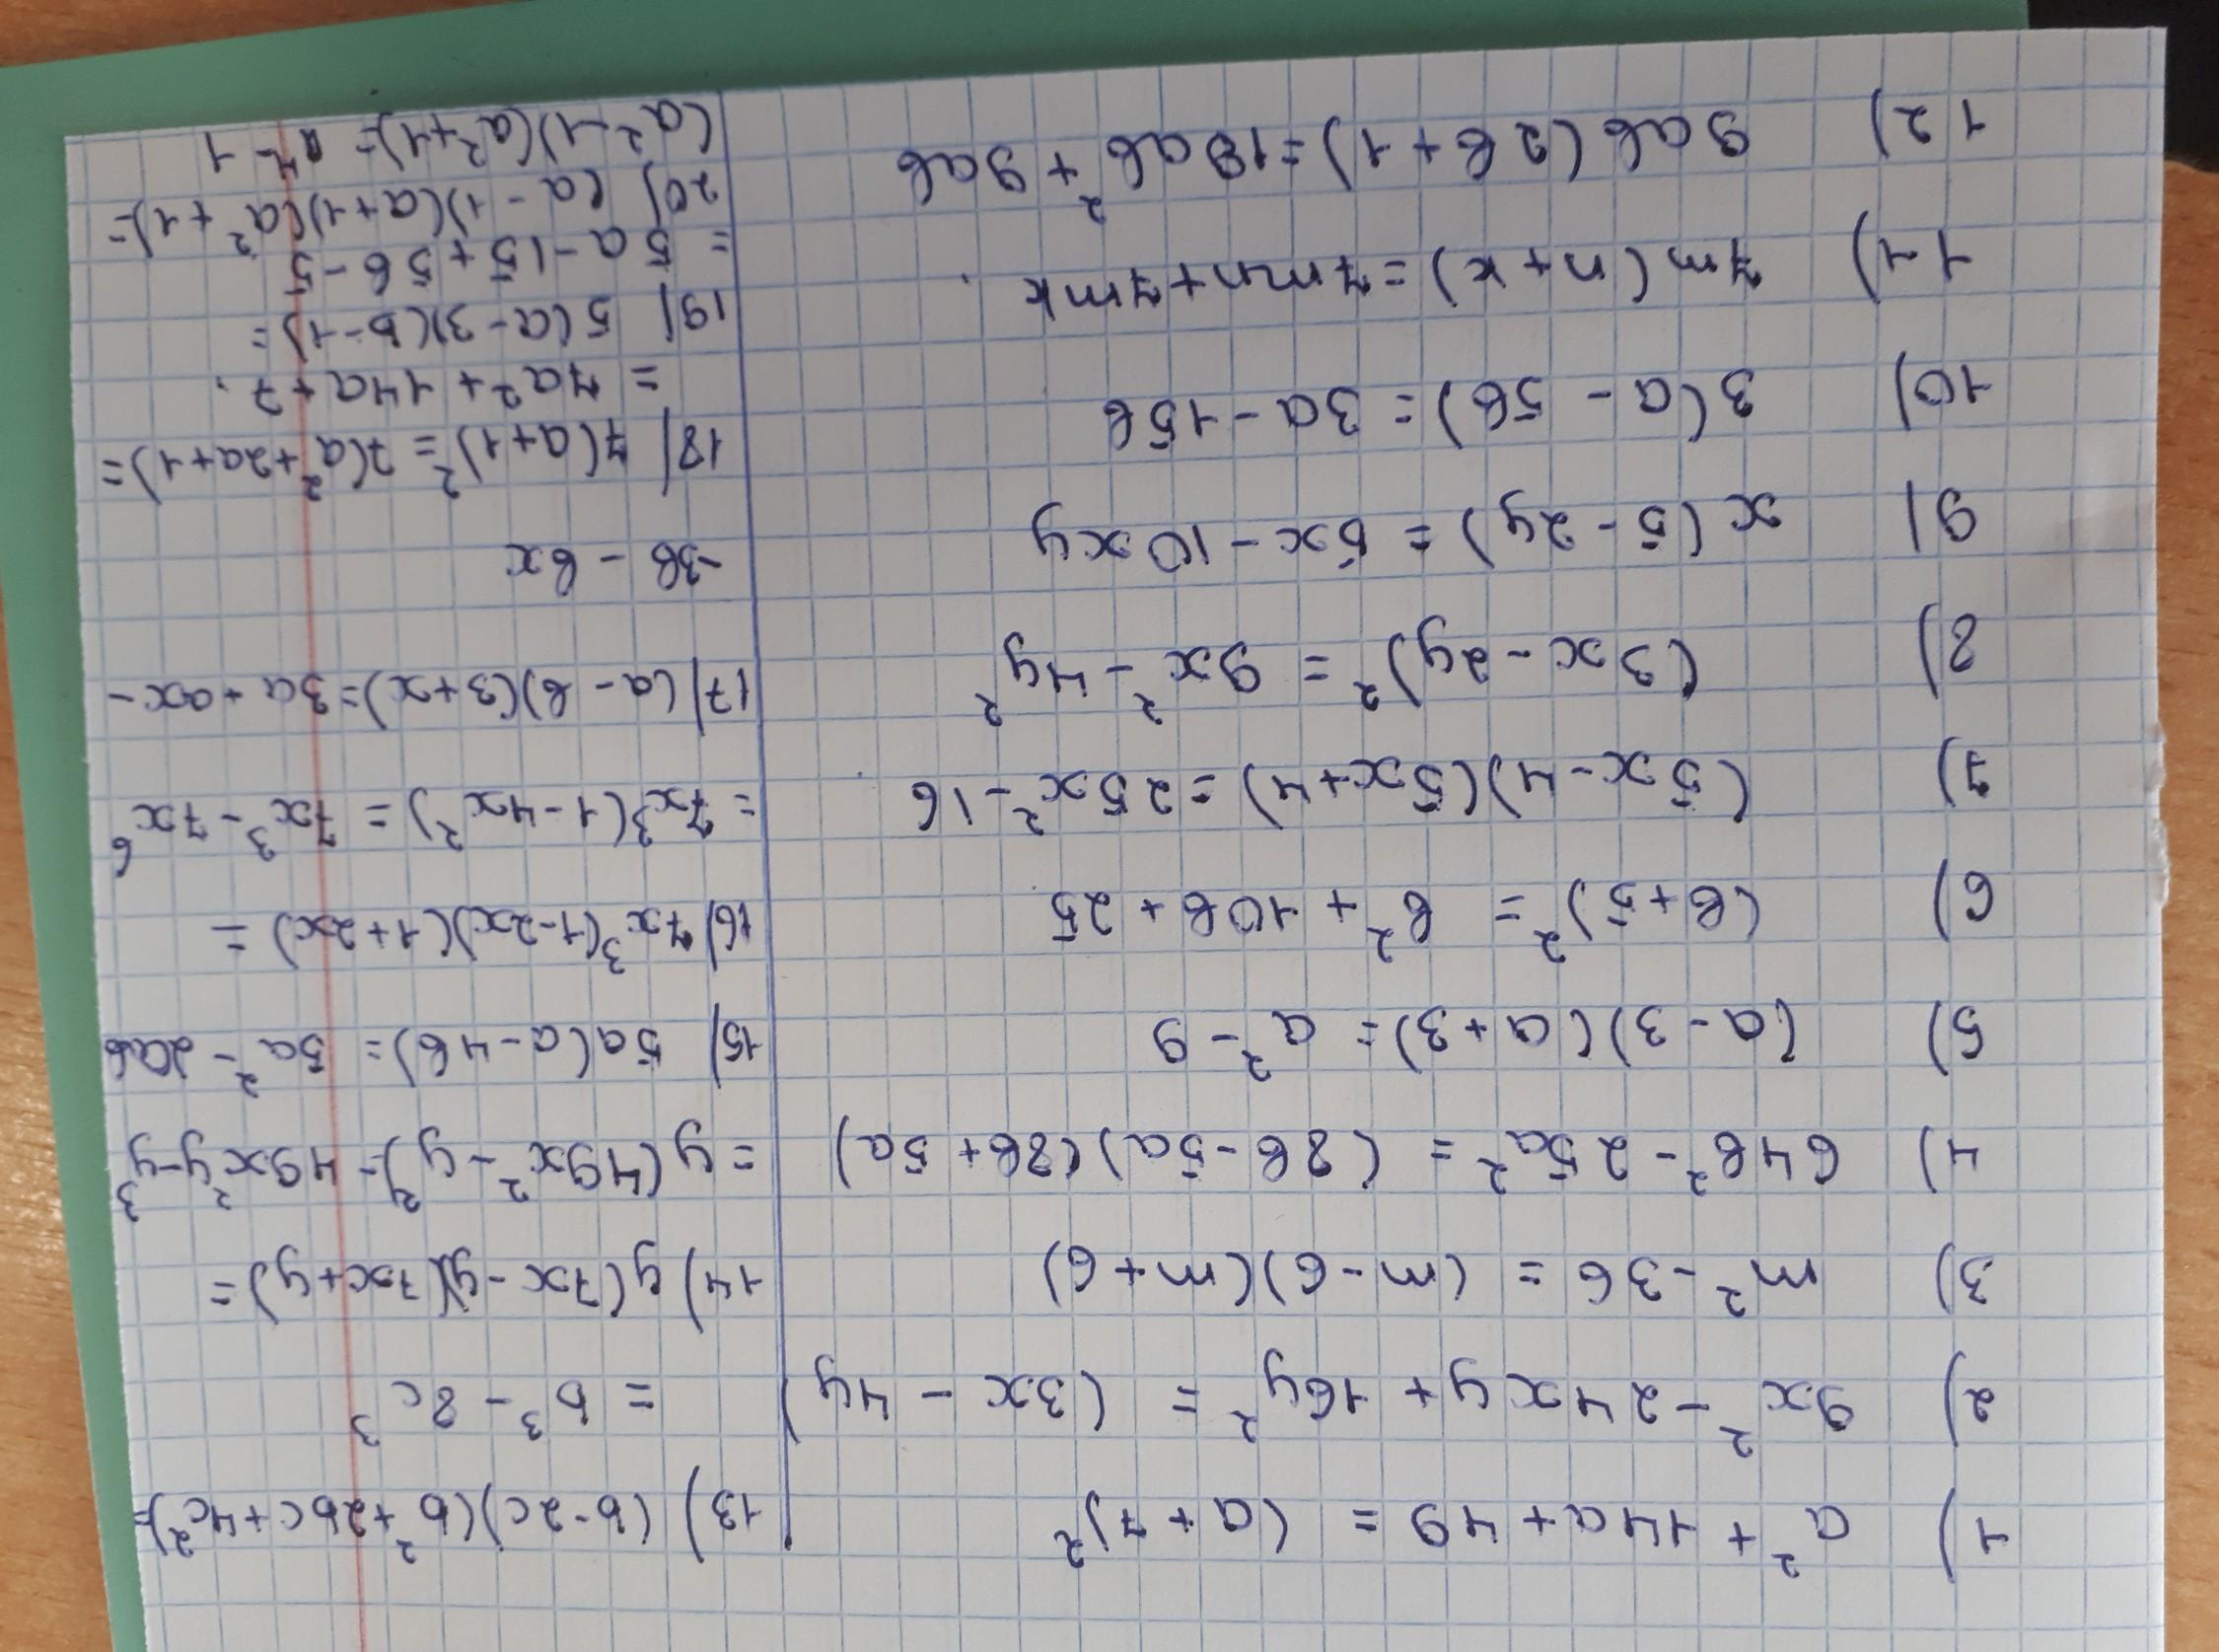 1) a² + 14a + 49 = (a + 7)²
2) 9x² - 24xy + 16y² = (3x - 4y)
3) m² - 36 = (m - 6)(m + 6)
4) 64b² - 25a² = (8b - 5a)(8b + 5a)
5) (a - 3)(a + 3) = a² - 9
6) (b + 5)² = b² + 10b + 25
7) (5x - 4)(5x + 4) = 25x² - 16
8) (3x - 2y)² = 9x² - 4y²
9) x(5 - 2y) = 5x - 10xy
10) 3(a - 5b) = 3a - 15b
11) 7m(n + k) = 7mn + 7mk
12) 9ab(2b + 1) = 18ab² + 9ab
13) (b - 2c)(b² + 2bc + 4c²) =
= b³ - 8c³
14) y(7x - y)(7x + y) =
= y(49x² - y²) = 49x²y - y³
15) 5a(a - 4b) = 5a² - 20ab
16) 7x³(1 - 2x)(1 + 2x) =
= 7x³(1 - 4x²) = 7x³ - 7x⁶
17) (a - b)(3 + x) = 3a + ax -
- 3b - bx
18) 7(a + 1)² = 7(a² + 2a + 1) =
= 7a² + 14a + 7.
19) 5(a - 3)(b - 1) =
= 5a - 15 + 5b - 5
20) (a - 1)(a + 1)(a² + 1) =
(a² - 1)(a² + 1) = a⁴ - 1